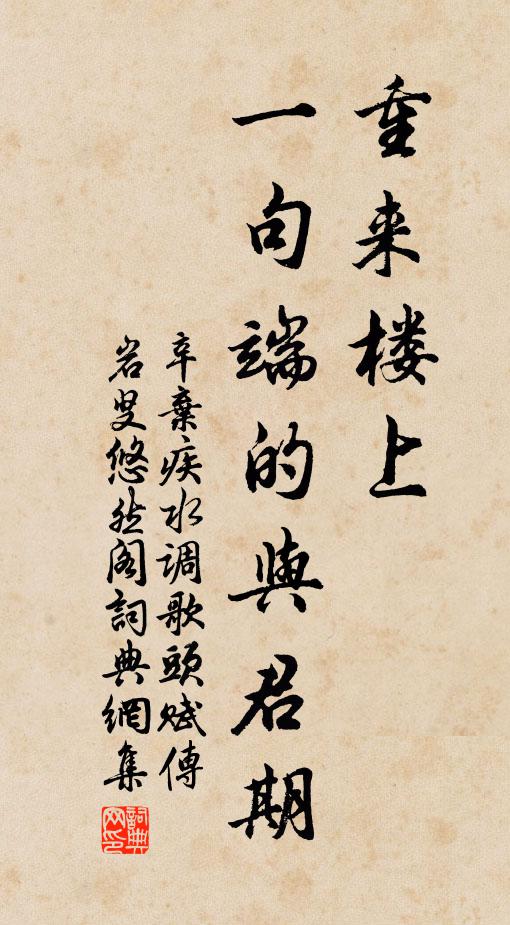 重来楼上
一句端的與君期
辛棄疾水调歌頭赋傅
岩叟悠然阁詞典網集
詞典网印